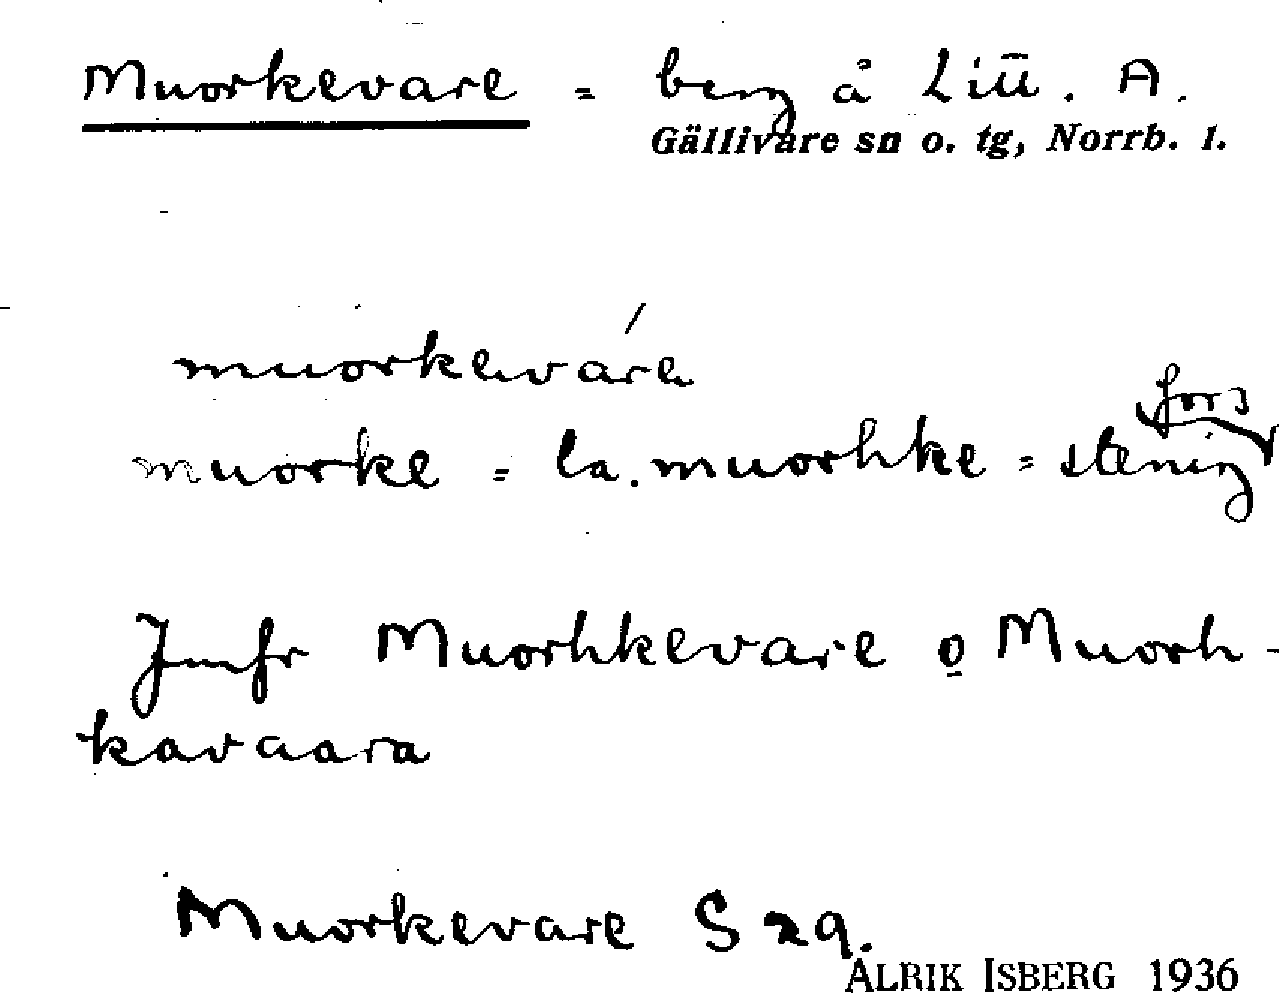 Muorkevare = berg å Liü. A.
Gällivare sn o. tg, Norrb. l.
muorkevárе
fors
muorke = la. muorhke = stenig
Jmfr Muorhkevare o Muorh-
kavaara
Muorkevare S 29.
ALRIK ISBERG 1936